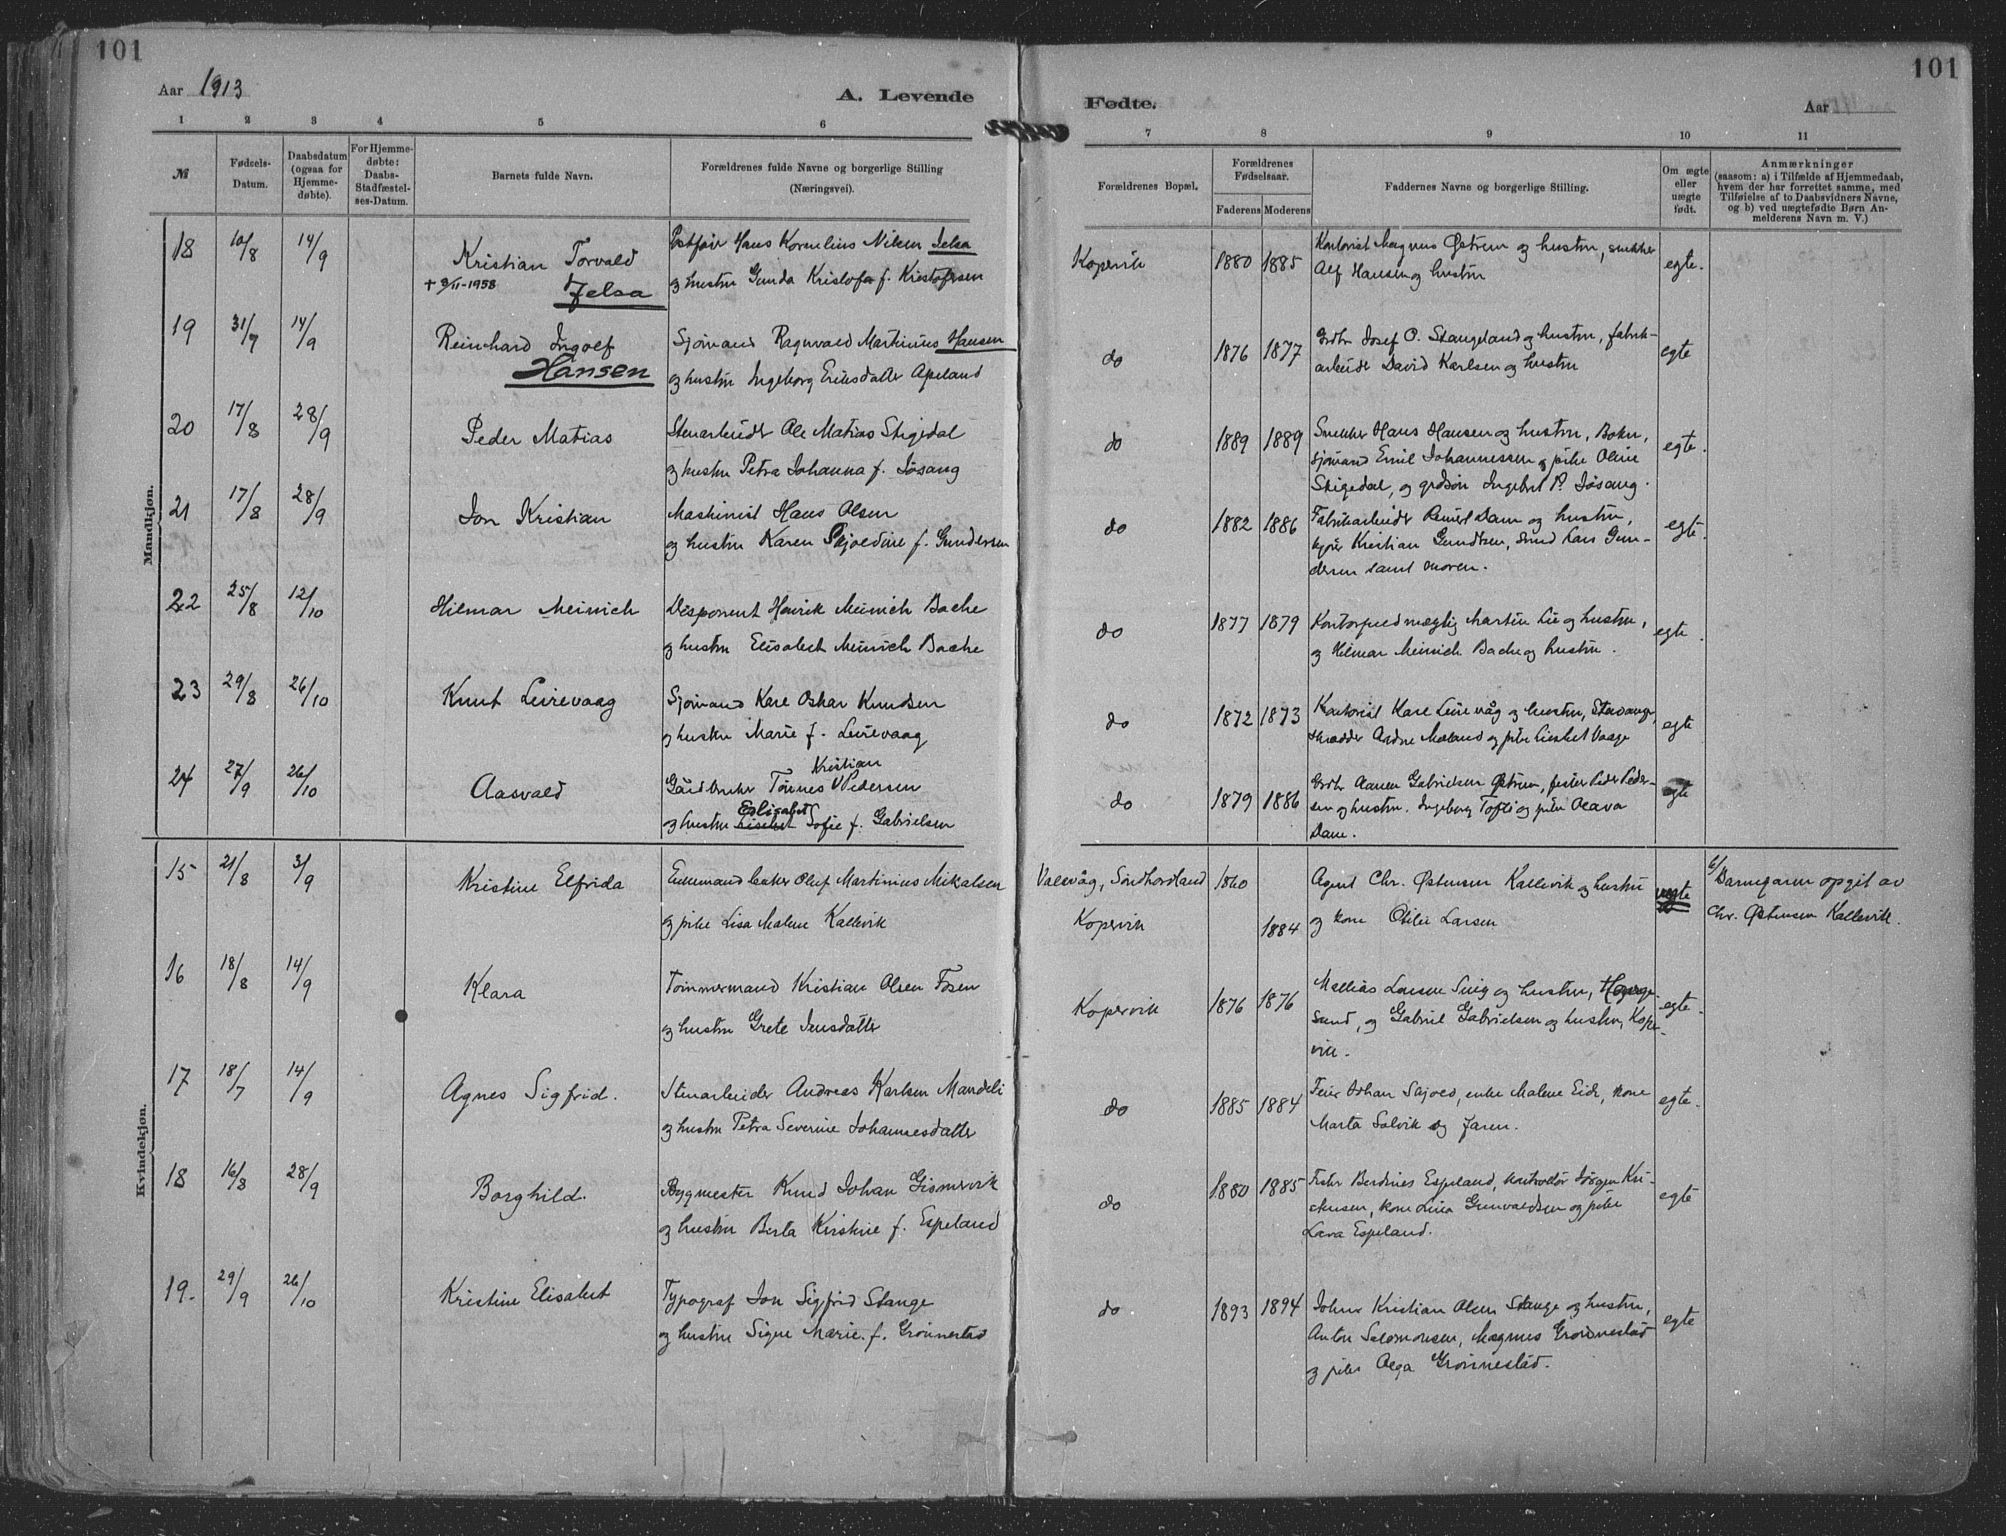 101
101
Aar 1913
A. Levende
Fødte.
Aar
1 2 3 4 5 6 7 8 9 10 11
№
Fødsels-Datum.
Daabsdatum (ogsaa for Hjemme-døbte).
For Hjemme-døbte: Daabs-Stadfæstel-ses-Datum.
Barnets fulde Navn.
Forældrenes fulde Navne og borgerlige Stilling (Næringsvei).
Forældrenes Bopæl.
Forældrenes Fødselsaar.
Faderens Moderens
Faddernes Navne og borgerlige Stilling.
Om ægte eller uægte født.
Anmærkninger
(saasom: a) i Tilfælde af Hjemmedaab, hvem der har forrettet samme, med Tilføielse af to Daabsvidners Navne, og b) ved uægtefødte Børn An-melderens Navn m. V.)
Mandkjøn.
18 10/8 14/9 Kristian Torvald Hans Kornelius Nilsen Jelsa Kopervik 1880 1885 Kontorist Magnus Østrem og hustru, snekker egte.
+ 9/11-1958 Jelsa og hustru Gunda Kristofa f. Kristofersen Alf Hansen og hustru
19 31/7 14/9 Reinhard Ingolf Sjømand Ragnvald Martinius Hansen do 1876 1877 Grdbr Josef O. Stangeland og hustru, fabrik- egte
Hansen og hustru Ingeborg Eriksdatter Apeland arbeider David Karlsen og hustru
20 17/8 28/9 Peder Matias Stenarbeider Ole Matias Stigedal do 1889 1889 Snekker Hans Hansen og hustru, Bokn, egte.
og hustru Petra Johanna f. Jøsang sjømand Emil Johannessen og pike Oline
Stigedal, og grdsøn Ingebret P. Jøsang.
21 17/8 28/9 Jon Kristian Maskinist Hans Olsen do 1882 1886 Fabrikarbeider Dam og hustru, egte.
og hustru Karen Skjoldine f. Gundersen Kristian Gundersen, Lars Gun-
dersen samt moren.
22 25/8 12/10 Hilmar Meinich Disponent Henrik Meinich Bache do 1877 1879 Kontorfuldmægtig Martin Lie og hustru, egte.
og hustru Elisabeth Meinich Bache og Hilmar Meinich Bache og hustru.
23 29/8 26/10 Knut Leirevaag Sjømand Karl Oskar Knudsen do 1872 1873 Kontorist Karl Leirevåg og hustru, Stavanger, egte
og hustru Marie f. Leirevaag skrædder Andr Mæland og pike Lisabet Vaage
24 27/9 26/10 Aasvald Gårdbruker Tønnes Kristian Pedersen do 1879 1886 Grdbr Aanen Gabrielsen Østrem, fisker Peder Peder- egte
og hustru Elisabet Sofie f. Gabrielsen sen og hustru. Ingeborg Tofte og pike Olava
Dam.
Kvindekjøn.
15 21/8 3/9 Kristine Elfrida Enkemand Oluf Martinius Mikalsen Valevåg, Søndhordland 1860 Agent Chr. Østensen Kallevik og hustru uegte b/ Barnefaren opgit av
og pike Lisa Malene Kallevik Kopervik 1884 og kone Otilie Larsen Chr. Østensen Kallevik.
16 18/8 14/9 Klara Tømmermand Kristian Olsen Fosen Kopervik 1876 1876 Mathias Larsen og hustru, Hauge- egte.
og hustru Grete Jensdatter sund, og Gabriel Gabrielsen og hustru, Koper-
vik.
17 18/7 14/9 Agnes Sigfrid. Stenarbeider Andreas Karlsen Mandeli do 1885 1884 Feier Johan Skjold, enke Malene Eide, kone egte.
og hustru Petra Severine Johannesdatter Marta Solvik og faren.
18 16/8 28/9 Borghild. Bygmester Knud Johan Gismervik do 1880 1885 Berdines Espeland, kontrollør Jørgen Kri- egte
og hustru Berta Kirstine f. Espeland stensen, kone Lina Gunvaldsen og pike
Lava Espeland.
19. 29/9 26/10 Kristine Elisabet Typograf Jon Sigfrid Stange do 1893 1894 Johan Kristian Olsen Stange og hustru, egte
og hustru Signe Marie f. Grønnestad Anton Salomonsen, Magnus Grønnestad
og pike Olga Grønnestad.